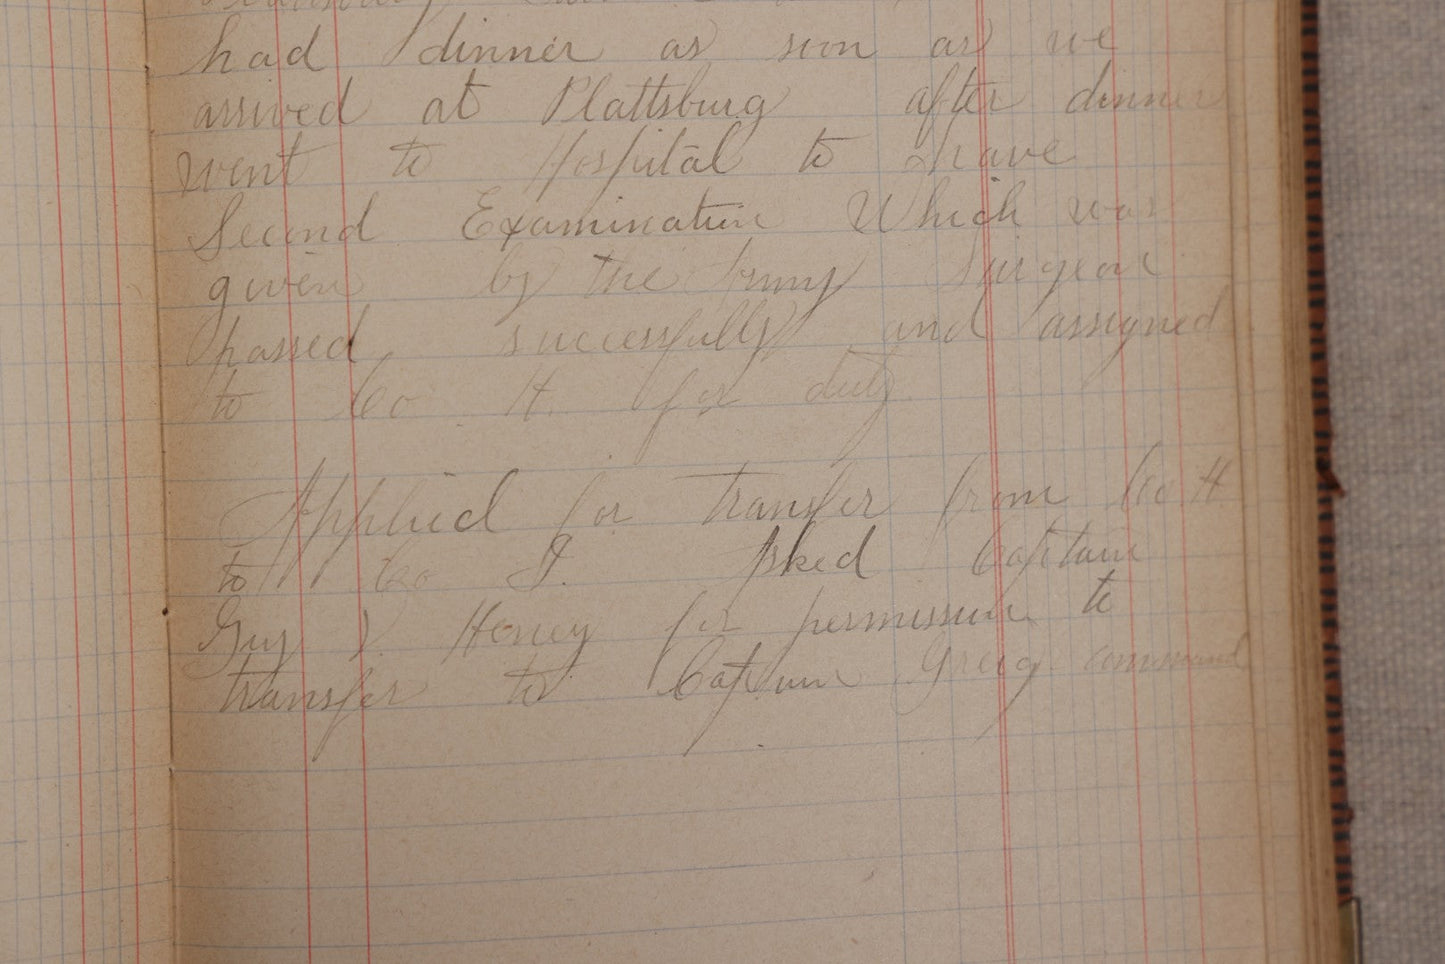 had dinner as soon as we
arrived at Plattsburg after dinner
went to Hospital to have
Second Examination Which was
given by the Army Surgeon
passed successfully and assigned
to Co H. for duty.
Applied for transfer from Co H
to Co I. Asked Captain
Guy V. Henry for permission to
transfer to Captain Greig command